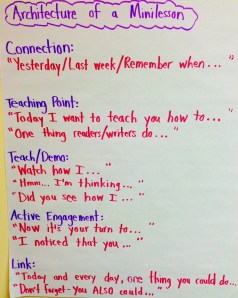 Architecture of a Minilesson
Connection:
"Yesterday/Last week/Remember when..."
Teaching Point:
"Today I want to teach you how to..."
"One thing readers/writers do..."
Teach/Demo:
"Watch how I..."
"Hmm... I'm thinking..."
"Did you see how I..."
Active Engagement:
"Now it's your turn to..."
"I noticed that you..."
Link:
"Today and every day, one thing you could do...
"Don't forget-you ALSO could..."